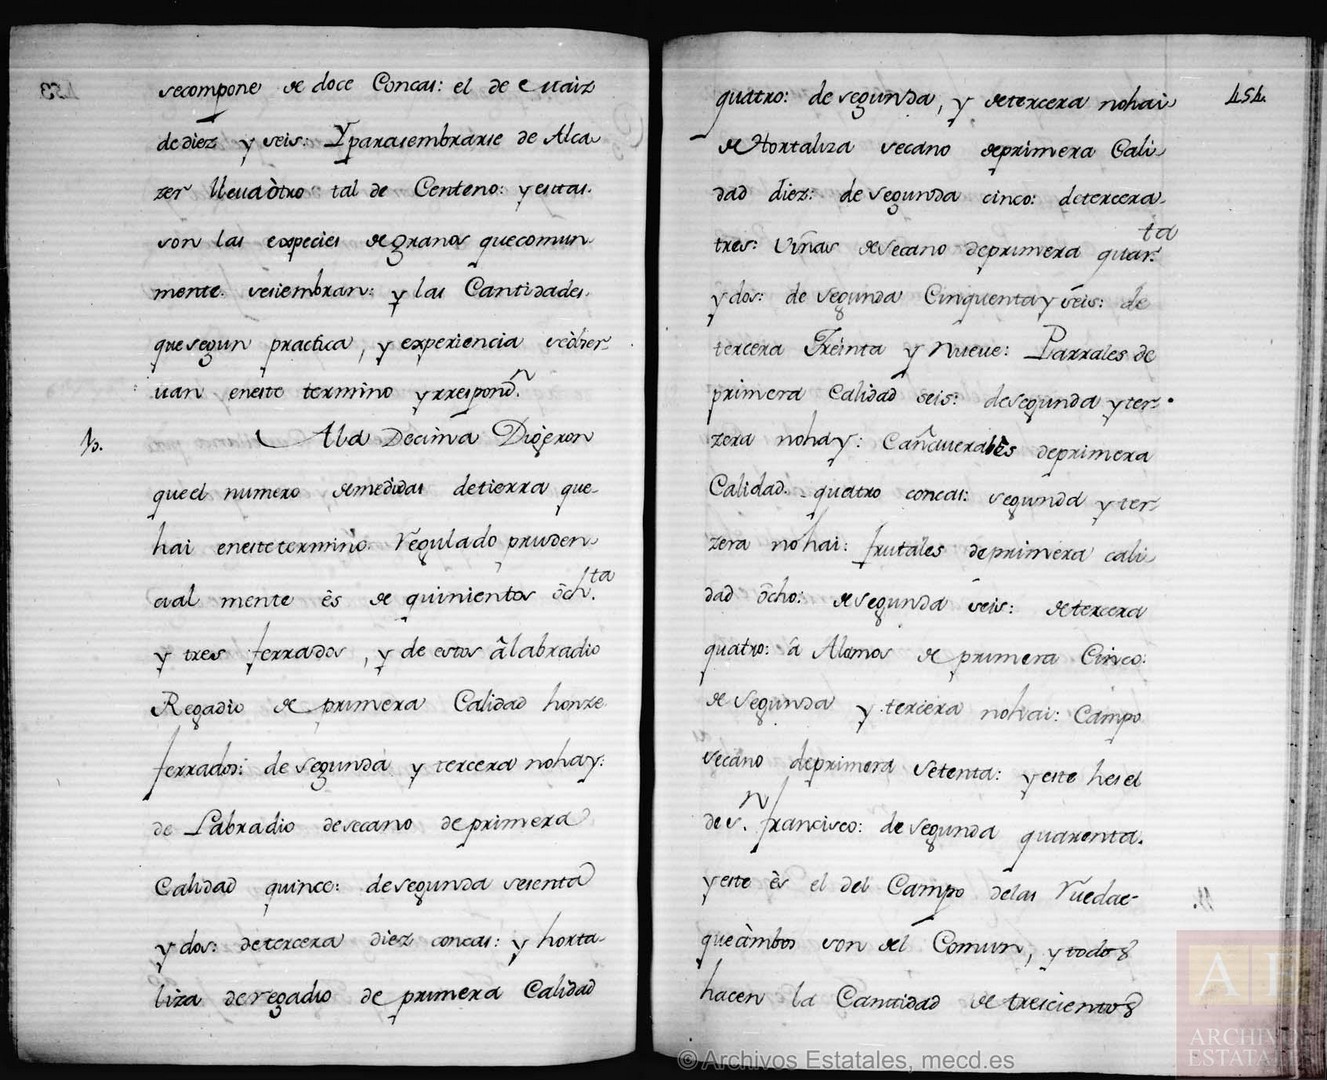 secompone de doce Concas: el de Maiz
de diez y seis: Y para sembrarse de Alca
zer lleua òtro tal de Centeno: y estas
son las expecies de granos que comun
mente se siembran: y las Cantidades
que segun practica, y experiencia se òbser
uan eneste termino y rrespond.n
10. A la Decima Dijeron
que el numero de medidas de tierra que
hai eneste termino Regulado pruden
cial mente ès de quinientos òch.ta
y tres ferrados, y de estos â labradio
Regadio de primera Calidad honze
ferrados: de segunda y tercera no hay:
de Labradio de secano de primera
Calidad quince: de segunda sesenta
y dos: de tercera diez concas: y horta
liza de regadio de primera Calidad
454.
quatro: de segunda, y de tercera no hai
de Hortaliza secano de primera Cali
dad diez: de segunda cinco: de tercera
tres: Viñas de secano de primera quar.ta
y dos: de segunda Cinquenta y seis: de
tercera Treinta y Nueue: Parrales de
primera Calidad seis: de segunda y ter
zera no hay: Cañauerales de primera
Calidad quatro concas: segunda y ter
zera no hai: frutales de primera cali
dad òcho: de segunda seis: de tercera
quatro: â Alamos de primera Cinco:
de segunda y tercera no hai: Campo
secano de primera setenta: y este hes el
de S.n francisco: de segunda quarenta
y este ès el del Campo de las Ruedas
que àmbos son del Comun, y todos
hacen la Cantidad de trescientos
© Archivos Estatales, mecd.es
AE
ARCHIVOS
ESTATALES